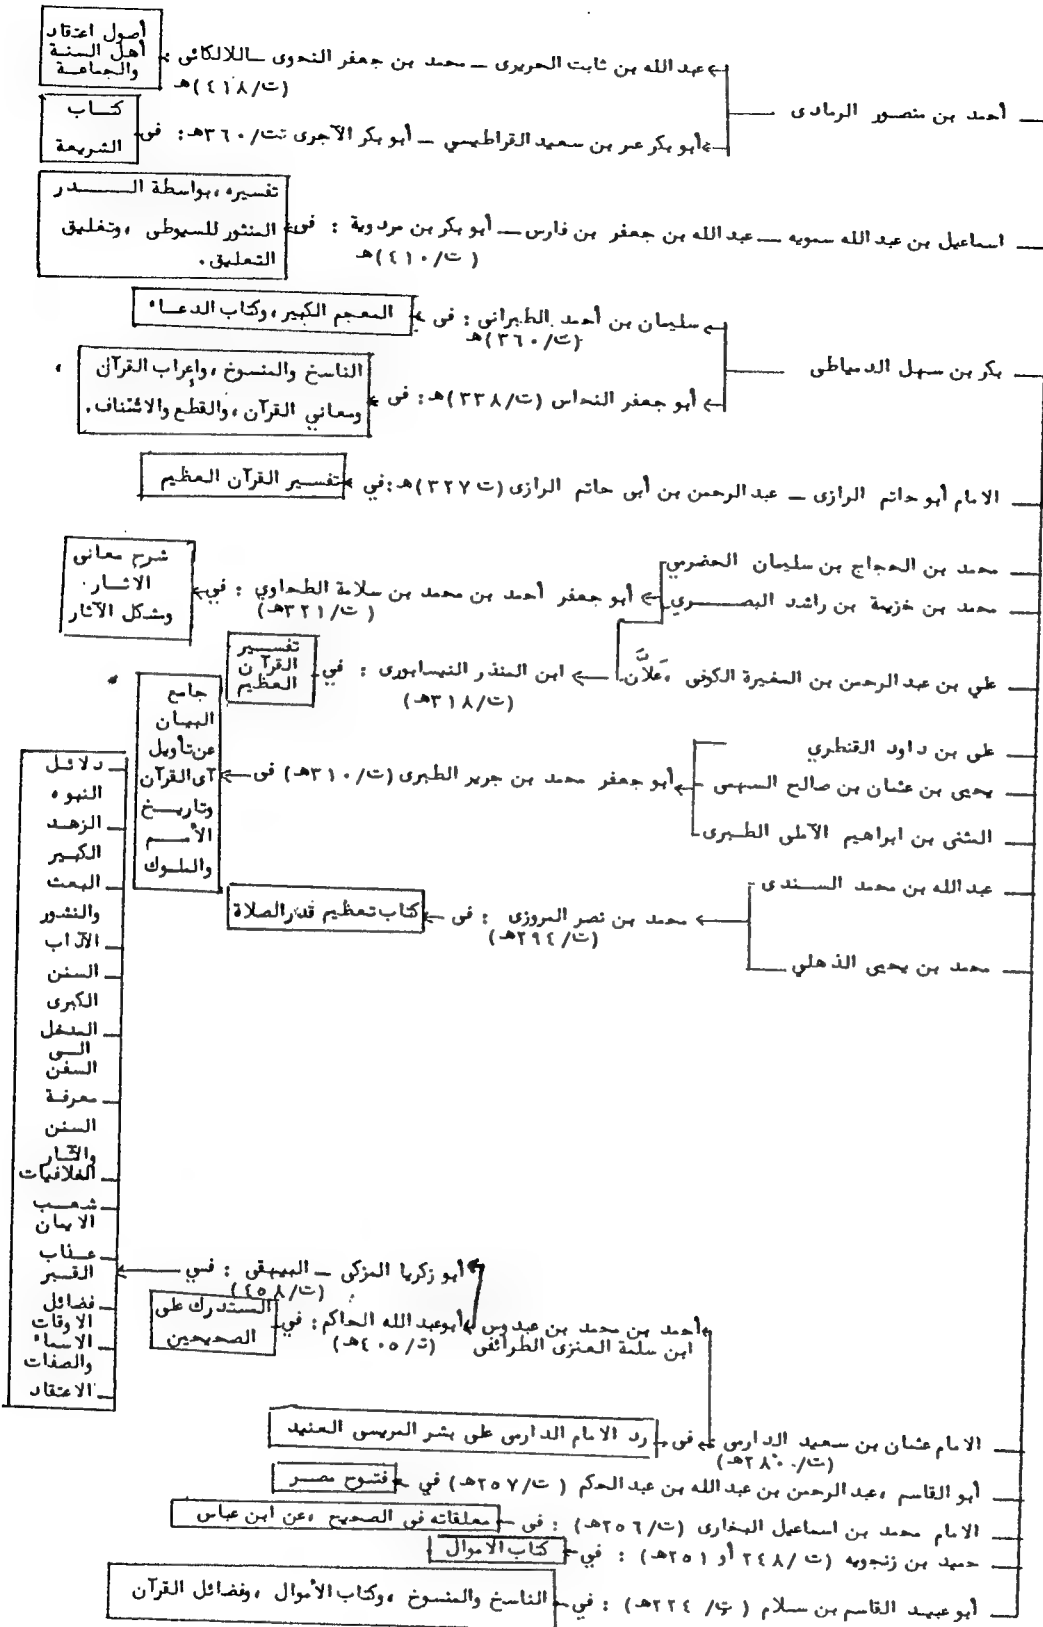 أحمد بن منصور الرمادى
عبد الله بن ثابت الحريرى ــ محمد بن جعفر النحوى ــ اللالكائى :
(ت/٤١٨)هـ
أصول اعتقاد
أهل السنة
والجماعة
أبو بكر عمر بن سعيد القراطيسي ــ أبو بكر الآجرى تت/٣٦٠هـ: فى
كتــاب
الشريعة
اسماعيل بن عبد الله سمويه ــ عبد الله بن جعفر بن فارس ــ أبو بكر بن مردوية : فى
(ت/٤١٠)هـ
تفسيره ،بواسطة الــــدر
المنثور للسيوطى ،وتغليق
التعليق .
بكر بن سهل الدمياطى
سليمان بن أحمد الطبرانى : فى
(ت/٣٦٠)هـ
المعجم الكبير ،وكتاب الدعــاء
أبو جعفر النحاس (ت/٣٣٨)هـ: فى
الناسخ والمنسوخ ،وإعراب القرآن
ومعاني القرآن ،والقطع والائتناف.
الامام أبو حاتم الرازى ــ عبد الرحمن بن أبى حاتم الرازى (ت ٣٢٧)هـ:في
تفسير القرآن العظيم
محمد بن الحجاج بن سليمان الحضرمي
محمد بن خزيمة بن راشد البصــــري
أبو جعفر أحمد بن محمد بن سلامة الطحاوي : في
(ت/٣٢١هـ)
شرح معانى
الاثــار
ومشكل الآثار
علي بن عبد الرحمن بن المغيرة الكوفى ،عَلاَّن
ابن المنذر النيسابورى : في
(ت/٣١٨هـ)
تفســير
القرآن
العظيم
على بن داود القنطري
يحيى بن عثمان بن صالح السهمى
المثنى بن ابراهيم الآملى الطــبرى
أبو جعفر محمد بن جرير الطبرى (ت/٣١٠هـ) فى
جامع
البيــان
عن تأويل
آى القرآن
وتاريــخ
الأمــم
والملـوك
عبد الله بن محمد الســندى
محمد بن يحيى الذهلي
محمد بن نصر المروزى : فى
(ت/٢٩٤هـ)
كتاب تعظيم قدر الصلاة
دلائــل
النبوه
الزهــد
الكبــير
البعــث
والنشور
الآداب
السنن
الكبرى
المدخل
الــى
السنن
معرفـة
السنن
والآثــار
الخلافيات
شعــب
الايمان
عــذاب
القــبر
فضائل
الاوقات
الاسماء
والصفات
الاعتقاد
أبو زكريا المزكى ــ البيهقى : فــي
(ت/٤٥٨هـ)
أحمد بن محمد بن عبدوس
ابن سلمة العنزى الطرائفى
أبو عبد الله الحاكم: في
(ت/٤٠٥هـ)
المستدرك على
الصحيحين
الامام عثمان بن سعيد الدارمى فى
(ت/٢٨٠هـ)
رد الامام الدارمى على بشر المريسى العنيد
أبو القاسم ،عبد الرحمن بن عبد الله بن عبد الحكم (ت/٢٥٧هـ) في
فتــوح مصــر
الامام محمد بن اسماعيل البخارى (ت/٢٥٦هـ) : فى
معلقاته فى الصحيح ،عن ابن عباس
حميد بن زنجويه (ت/٢٤٨ أو ٢٥١هـ) : في
كتاب الاموال
أبو عبيـد القاسم بن سـلام (ت/٢٢٤هـ) : في
الناسخ والمنسوخ ،وكتاب الأموال ،وفضائل القرآن